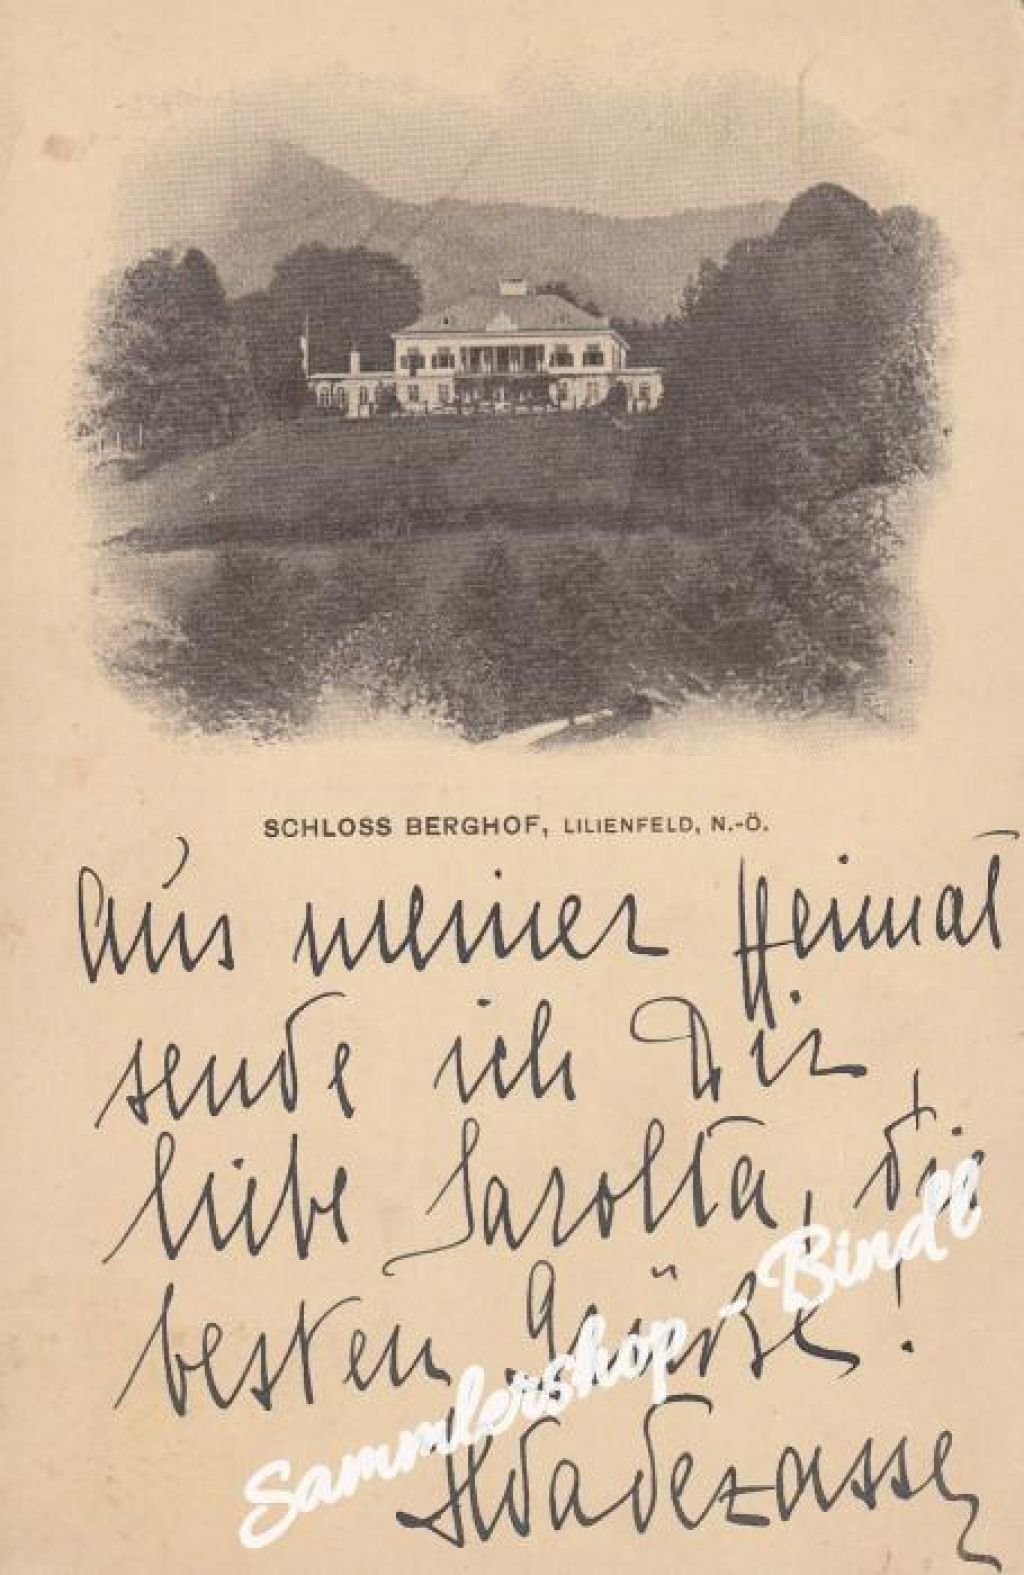 SCHLOSS BERGHOF, LILIENFELD, N.-Ö.
Aus meiner Heimat
sende ich Dir
liebe Sarolta, die
besten Grüße!
Sammlershop - Bindl